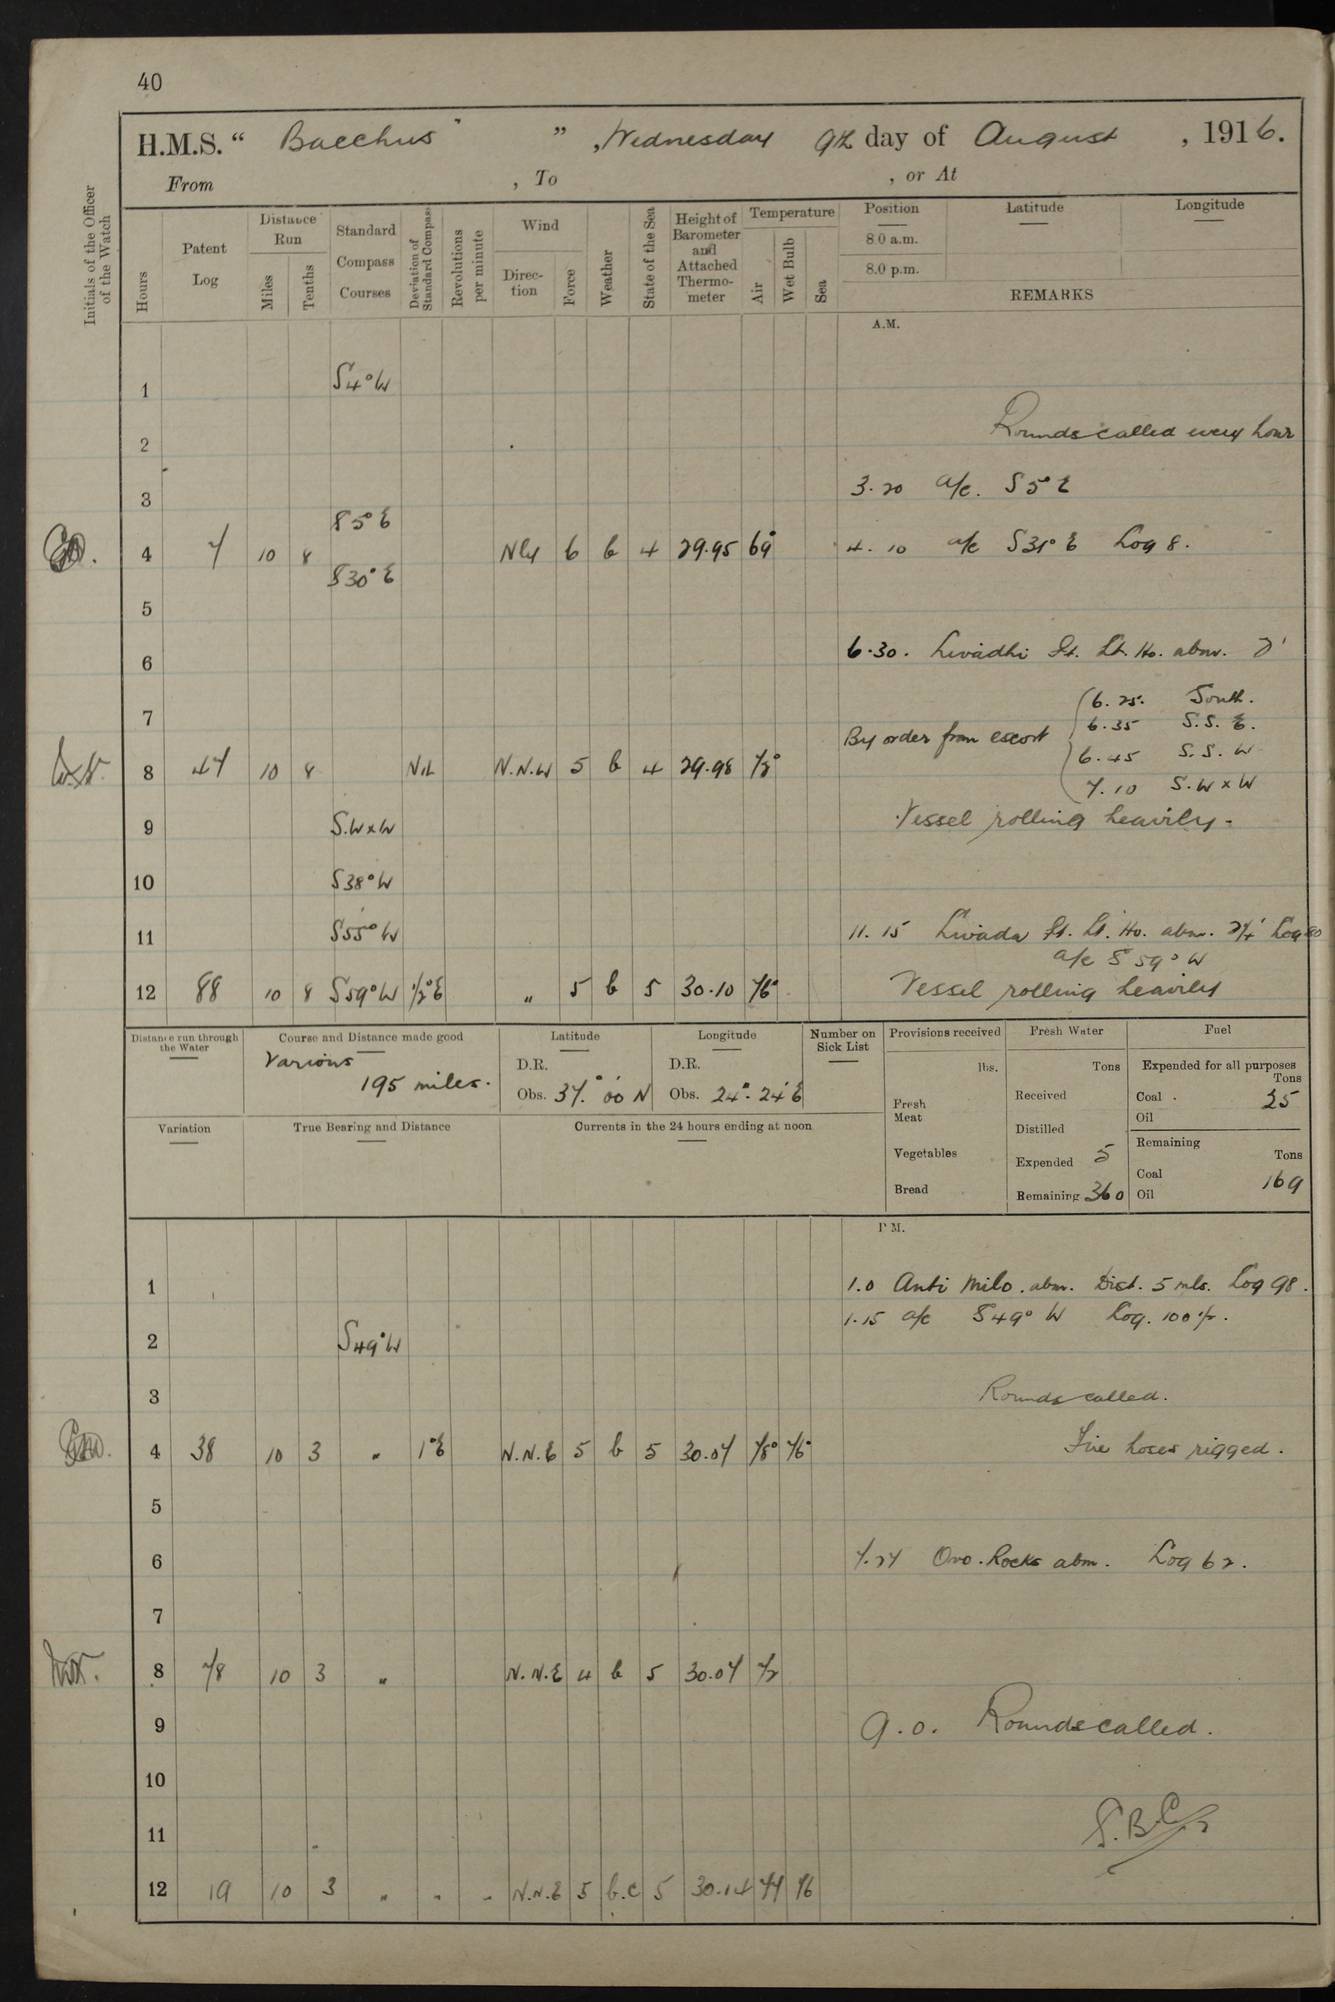 40
H.M.S. “ Bacchus ” , Wednesday 9th day of August , 1916.
From , To , or At
Initials of the Officer of the Watch
Hours
Patent Log
Distance Run
Miles
Tenths
Standard Compass Courses
Deviation of Standard Compass
Revolutions per minute
Wind
Direction
Force
Weather
State of the Sea
Height of Barometer and Attached Thermometer
Temperature
Air
Wet Bulb
Sea
Position Latitude Longitude
8.0 a.m.
8.0 p.m.
REMARKS
A.M.
1 S4°W
2 Rounds called every hour
3 3.20 a/c. S5°E
S5°E
4 7 10 8 Nly 6 b 4 29.95 69° 4.10 a/c S31°E Log 8.
S30°E
5
6 6.30. Livadhi Lt. Ho. abm. 2'
7 By order from escort
6.25. South.
6.35 S.S.E.
6.45 S.S.W
7.10 S.W x W
8 47 10 8 Nil N.N.W 5 b 4 29.98 72°
9 S.W x W Vessel rolling heavily.
10 S38°W
11 S55°W 11.15 Livada Lt. Ho. abm. Log 80
a/c S59°W
12 88 10 8 S59°W ½°E " 5 b 5 30.10 76° Vessel rolling heavily
Distance run through the Water
Course and Distance made good
Various
195 miles.
Latitude
D.R.
Obs. 37.° 00' N
Longitude
D.R.
Obs. 24°. 24' E
Number on Sick List
Provisions received
lbs.
Fresh Meat
Vegetables
Bread
Fresh Water
Tons
Received
Distilled
Expended 5
Remaining 360
Fuel
Expended for all purposes
Tons
Coal . 25
Oil
Remaining
Tons
Coal 169
Oil
Variation
True Bearing and Distance
Currents in the 24 hours ending at noon
P.M.
1 1.0 Anti Milo. abm. Dist. 5 mls. Log 98.
1.15 a/c S49°W Log. 100½.
2 S49°W
3 Rounds called.
4 38 10 3 " 1°E N.N.E 5 b 5 30.07 78° 76° Fire hoses rigged.
5
6 7.27 Ovo. Rocks abm. Log 62.
7
8 78 10 3 " N.N.E 4 b 5 30.07 72
9 9.0. Rounds called.
10
11
12 19 10 3 " " " N.N.E 5 b.c 5 30.14 77 76